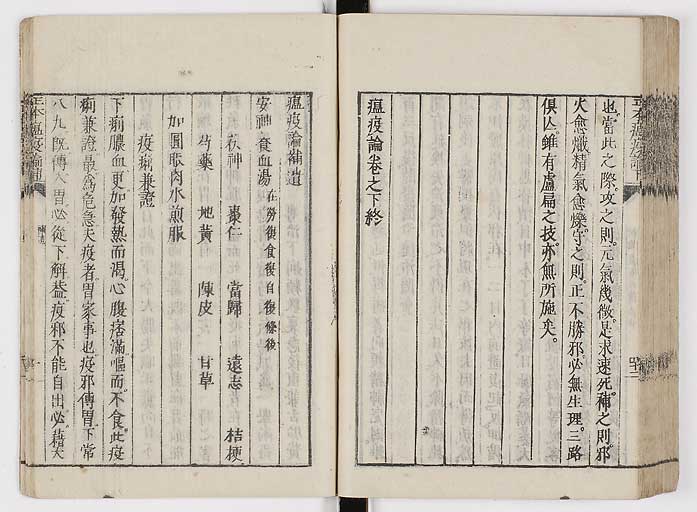 也當此之際攻之則元氣幾微是求速死補之則邪
火愈熾精氣愈爍守之則正不勝邪必無生理三路
俱亾雖有盧扁之技亦無所施矣
瘟疫論卷之下終
瘟疫論補遺
安神養血湯 在勞復食復自復條後
茯神 棗仁 當歸 遠志 桔梗
芍藥 地黃 陳皮 甘草
加圓眼肉水煎服
疫痢兼證
下痢膿血更加發熱而渴心腹痞滿嘔而不食此疫
痢兼證最爲危急夫疫者胃家事也疫邪傳胃下常
八九既傳入胃必從下解葢疫邪不能自出必藉大